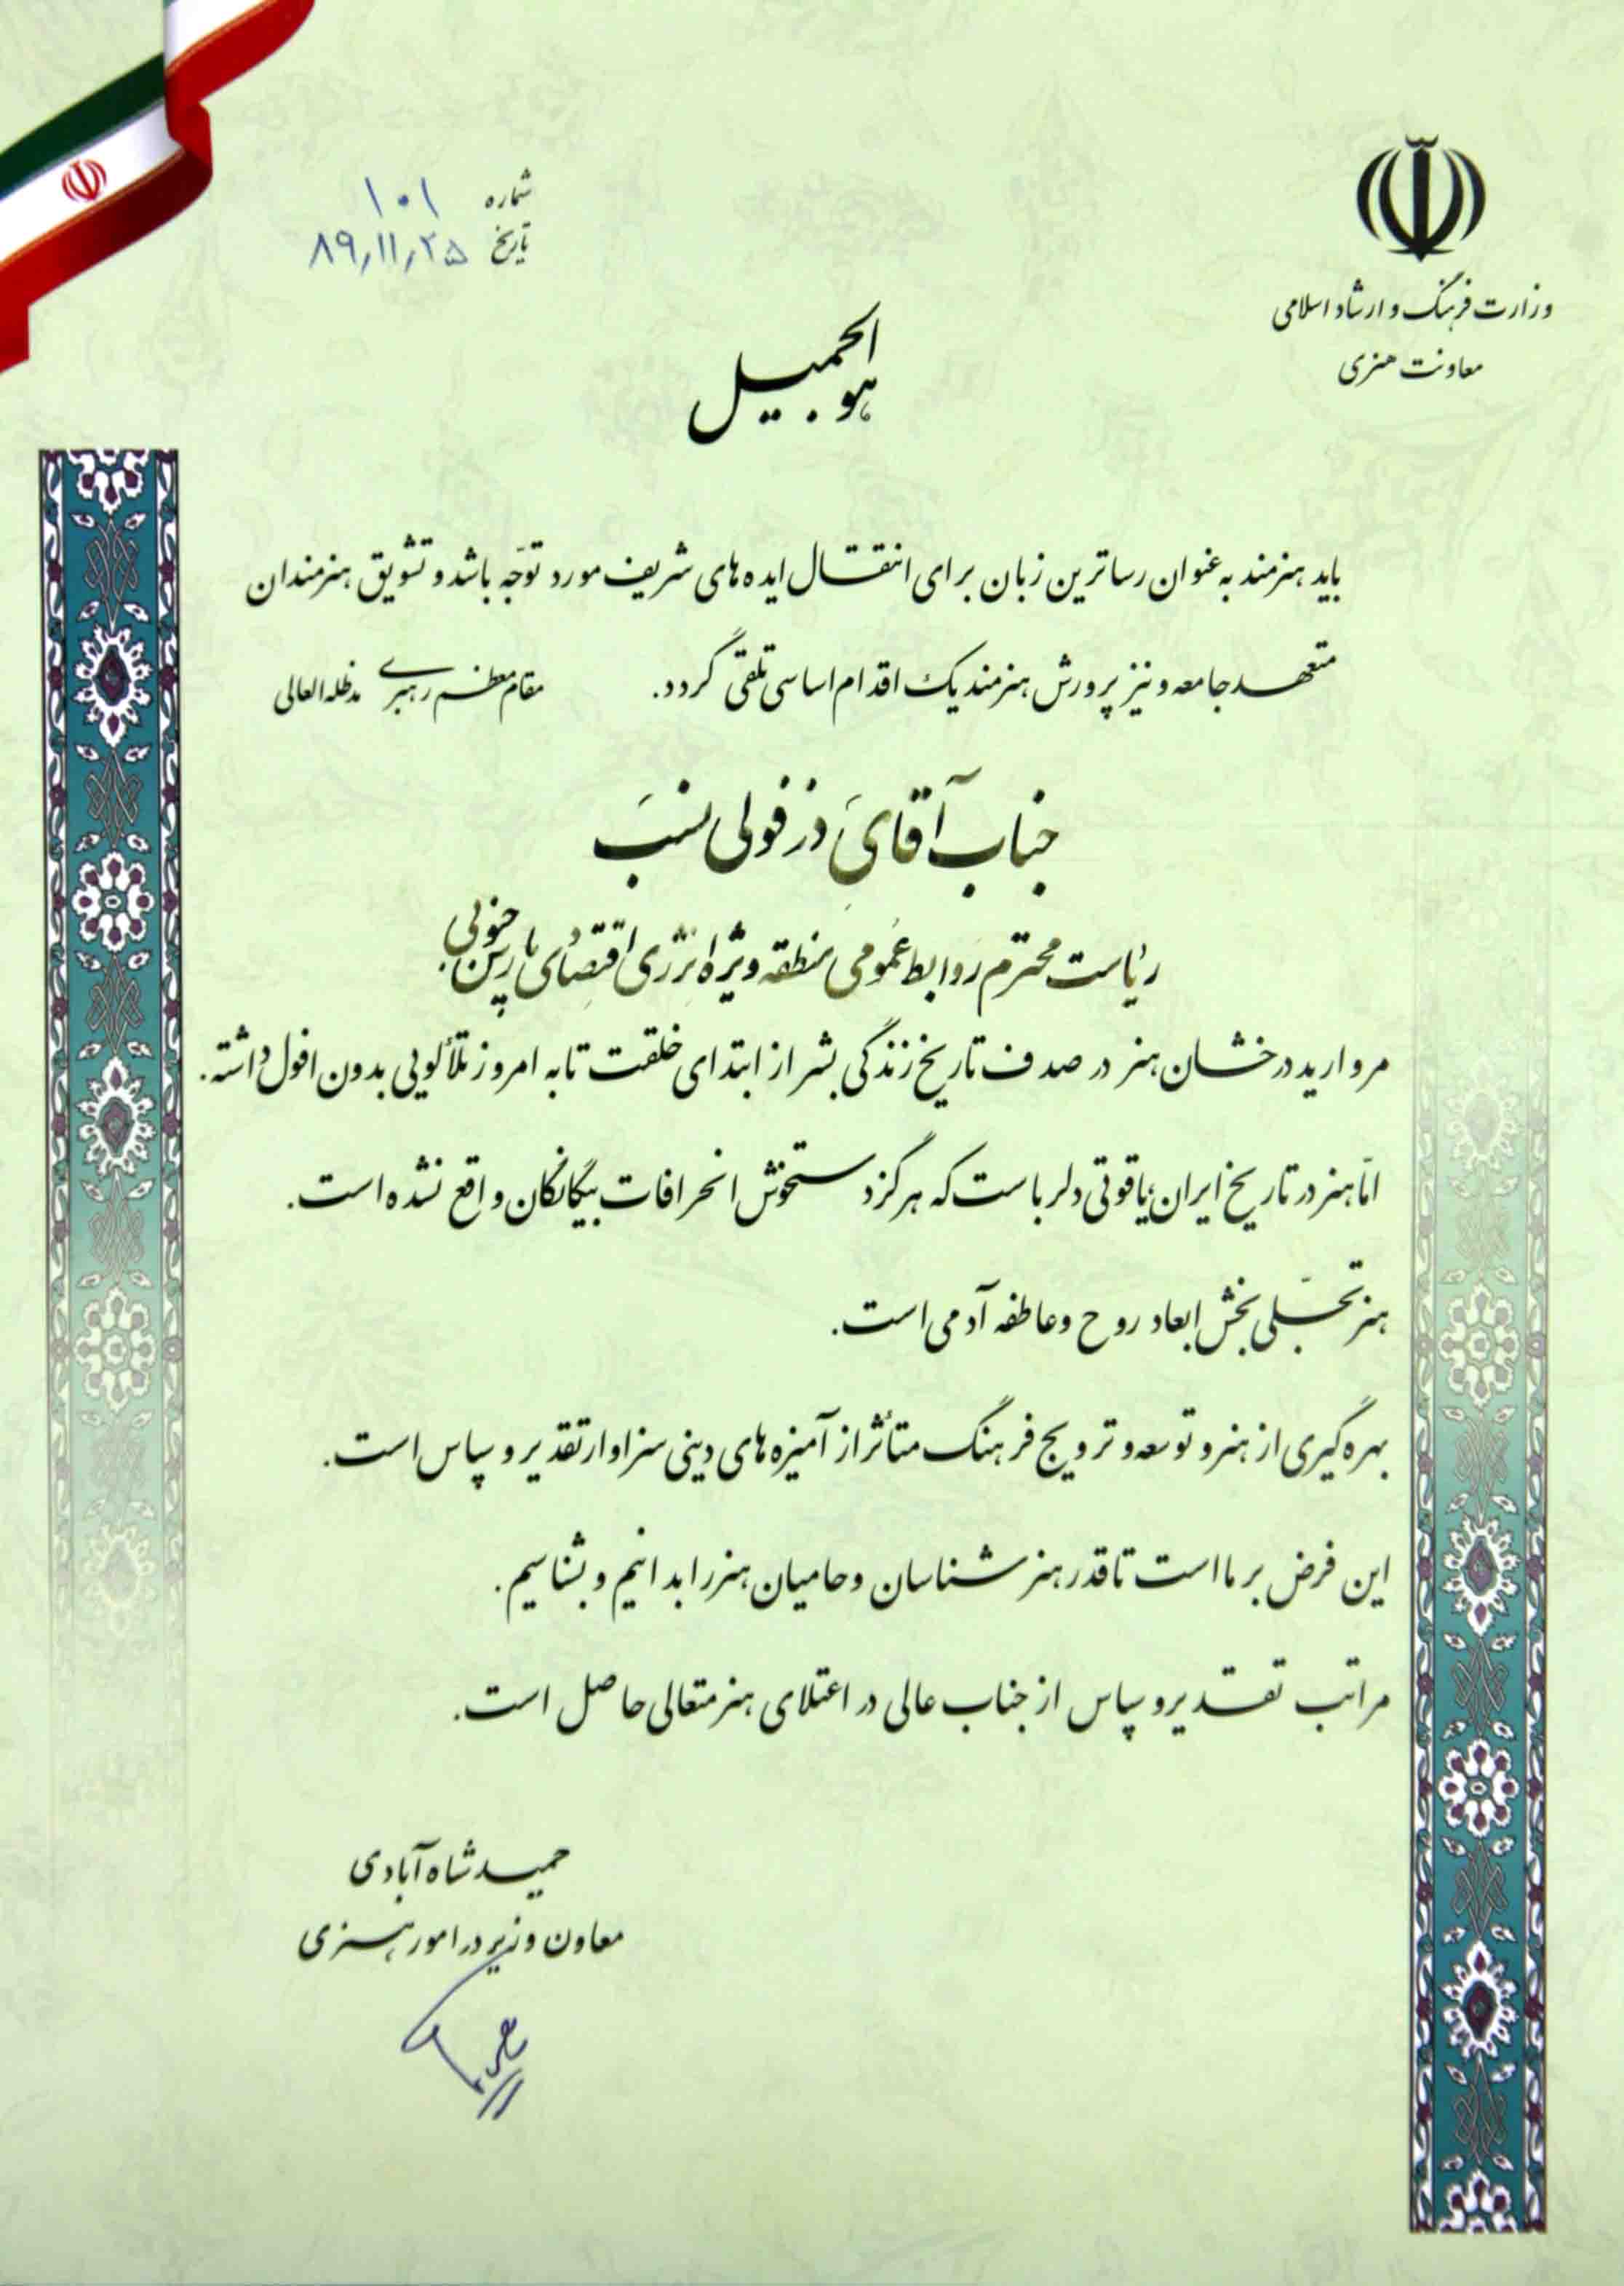 شماره ۱۰۱
تاریخ ۸۹/۱۱/۲۵
وزارت فرهنگ و ارشاد اسلامی
معاونت هنری
هوالجمیل
باید هنرمند به عنوان رساترین زبان برای انتقال ایده های شریف مورد توجّه باشد و تشویق هنرمندان
متعهد جامعه و نیز پرورش هنرمند یک اقدام اساسی تلقی گردد. مقام معظم رهبری مدظله العالی
جناب آقای دزفولی نسب
ریاست محترم روابط عمومی منطقه ویژه انرژی اقتصادی پارس جنوبی
مروارید درخشان هنر در صدف تاریخ زندگی بشر از ابتدای خلقت تا به امروز تلألویی بدون افول داشته.
امّا هنر در تاریخ ایران یاقوتی دلرباست که هرگز دستخوش انحرافات بیگانگان واقع نشده است.
هنر تجلّی بخش ابعاد روح و عاطفه آدمی است.
بهره گیری از هنر و توسعه و ترویج فرهنگ متأثر از آمیزه های دینی سزاوار تقدیر و سپاس است.
این فرض بر ما است تا قدر هنر شناسان و حامیان هنر را بدانیم و بشناسیم.
مراتب تقدیر و سپاس از جناب عالی در اعتلای هنر متعالی حاصل است.
حمید شاه آبادی
معاون وزیر در امور هنری